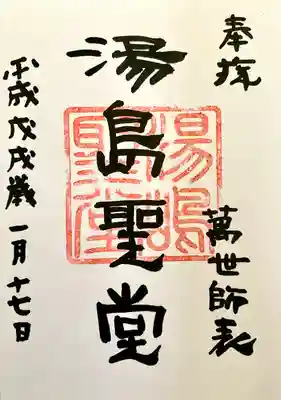 奉拝
萬世師表
湯島聖堂
湯島聖堂
平成戊戌歳一月十七日